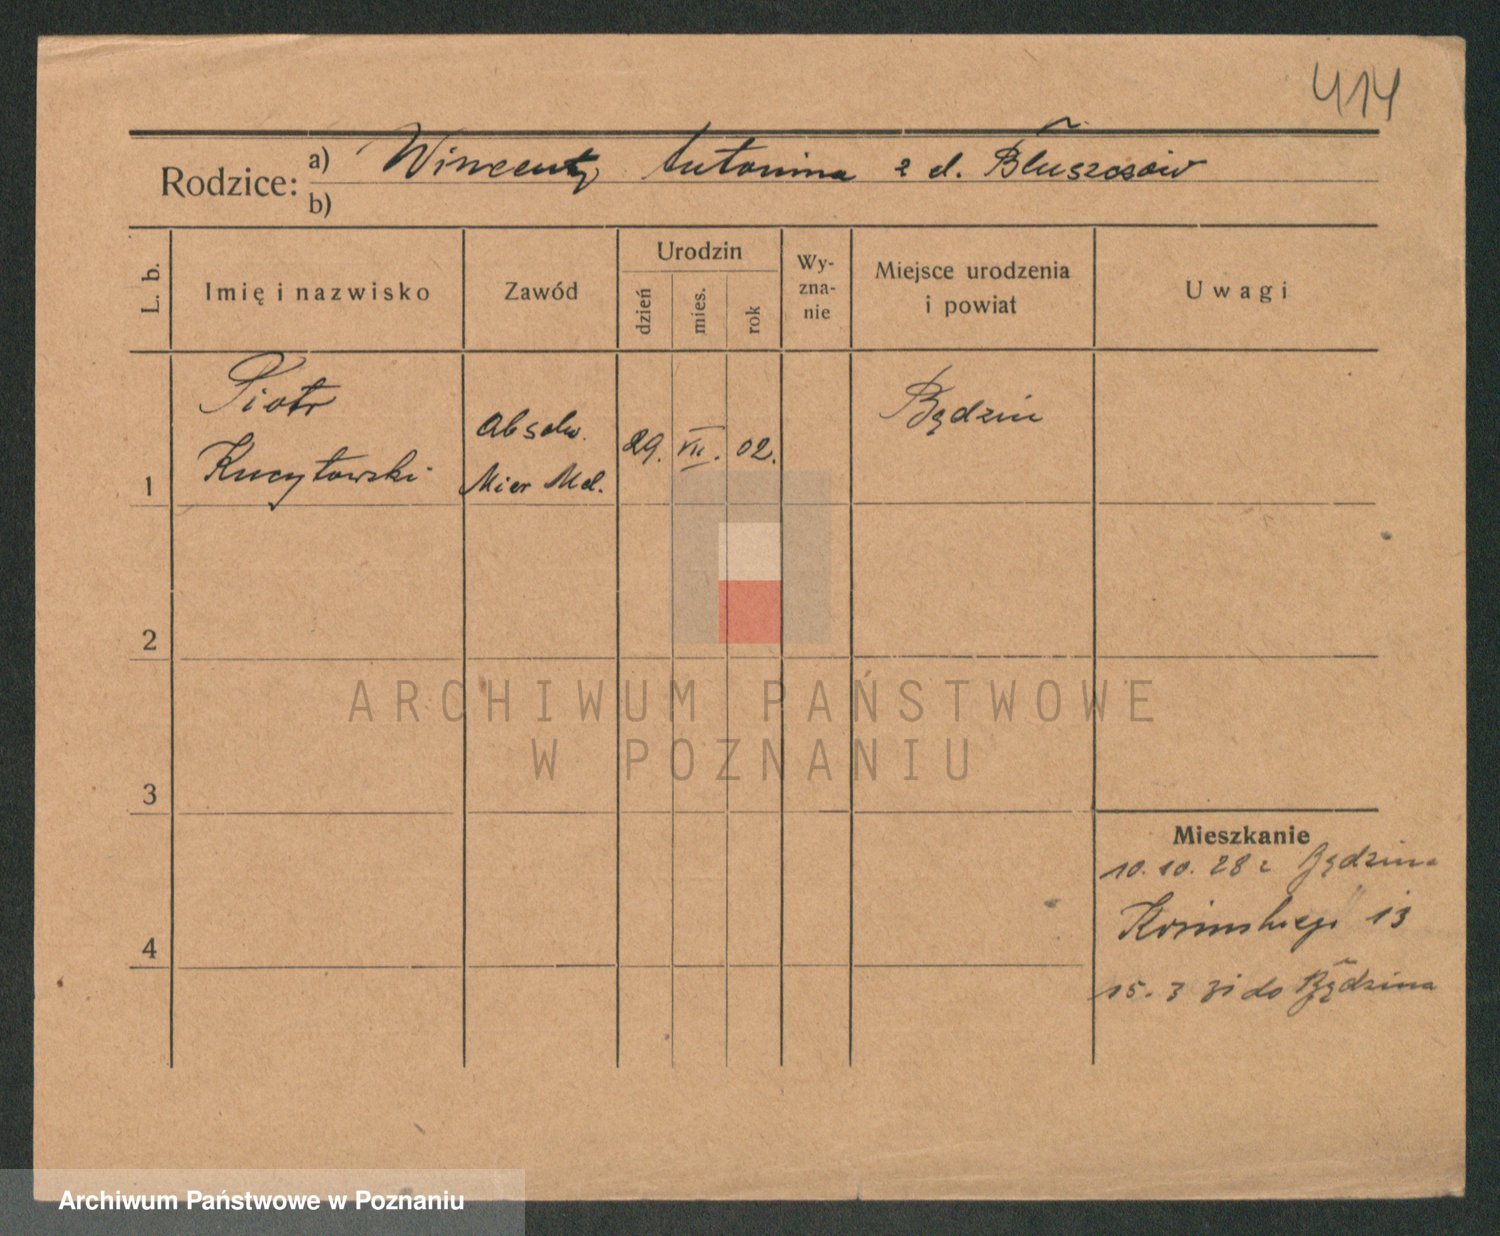 414
Rodzice: a) Wincenty Antonina z d. Bluszczów
b)
L. b.
Imię i nazwisko
Zawód
Urodzin
dzień
mies.
rok
Wy-
zna-
nie
Miejsce urodzenia
i powiat
Uwagi
Piotr
Kucytowski
Absolw.
Mier Mel.
29. VII. 02.
Będzin
1
2
3
4
Mieszkanie
10.10.28 z Będzina
13
15.3 31 do Będzina
ARCHIWUM PAŃSTWOWE
W POZNANIU
Archiwum Państwowe w Poznaniu